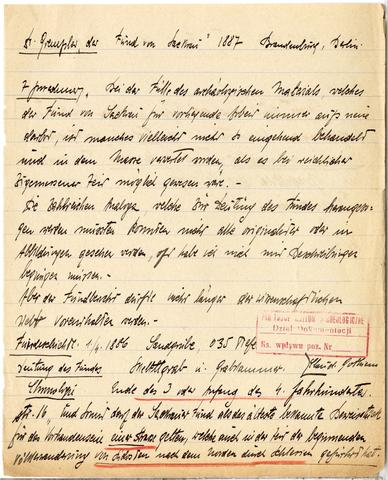 Grempler, der Fund von Sackrau 1887 Brandenburg, Berlin.
Bei der Fülle des archäologischen Materials, welches
der Fund von Sackrau für vorliegende Arbeit immer aufs neue
darbot, ist manches vielleicht nicht so eingehend behandelt
und in dem Masse verwertet worden, als es bei reichlicher
bemessener Zeit möglich gewesen wäre. –
Die zahlreichen Analoga, welche zur Deutung des Fundes herangezo-
gen werden mussten konnten nicht alle originaliter oder in
Abbildungen gesehen werden, oft habe ich mich mit Beschreibungen
begnügen müssen. –
Aber der Fundbericht dürfte nicht länger der wissenschaftlichen
Welt vorenthalten werden. –
Fundgeschichte. 1/4. 1886 Sandgrube, 0,35
Dział Dokumentacji
Ks. wpływu poz. Nr
Deutung des Fundes Skelettgrab in Grabkammer.
Chronologie Ende des 3 oder Anfang des 4. Jahrhunderts.
Str. 16 „Und somit darf der Sackrauer Fund als das älteste bekannte Beweisstück
für den Vorhandensein einer Strasse gelten, welche auch in der Zeit der beginnenden
Völkerwanderung von Südosten nach dem Norden durch Schlesien geführt hat.